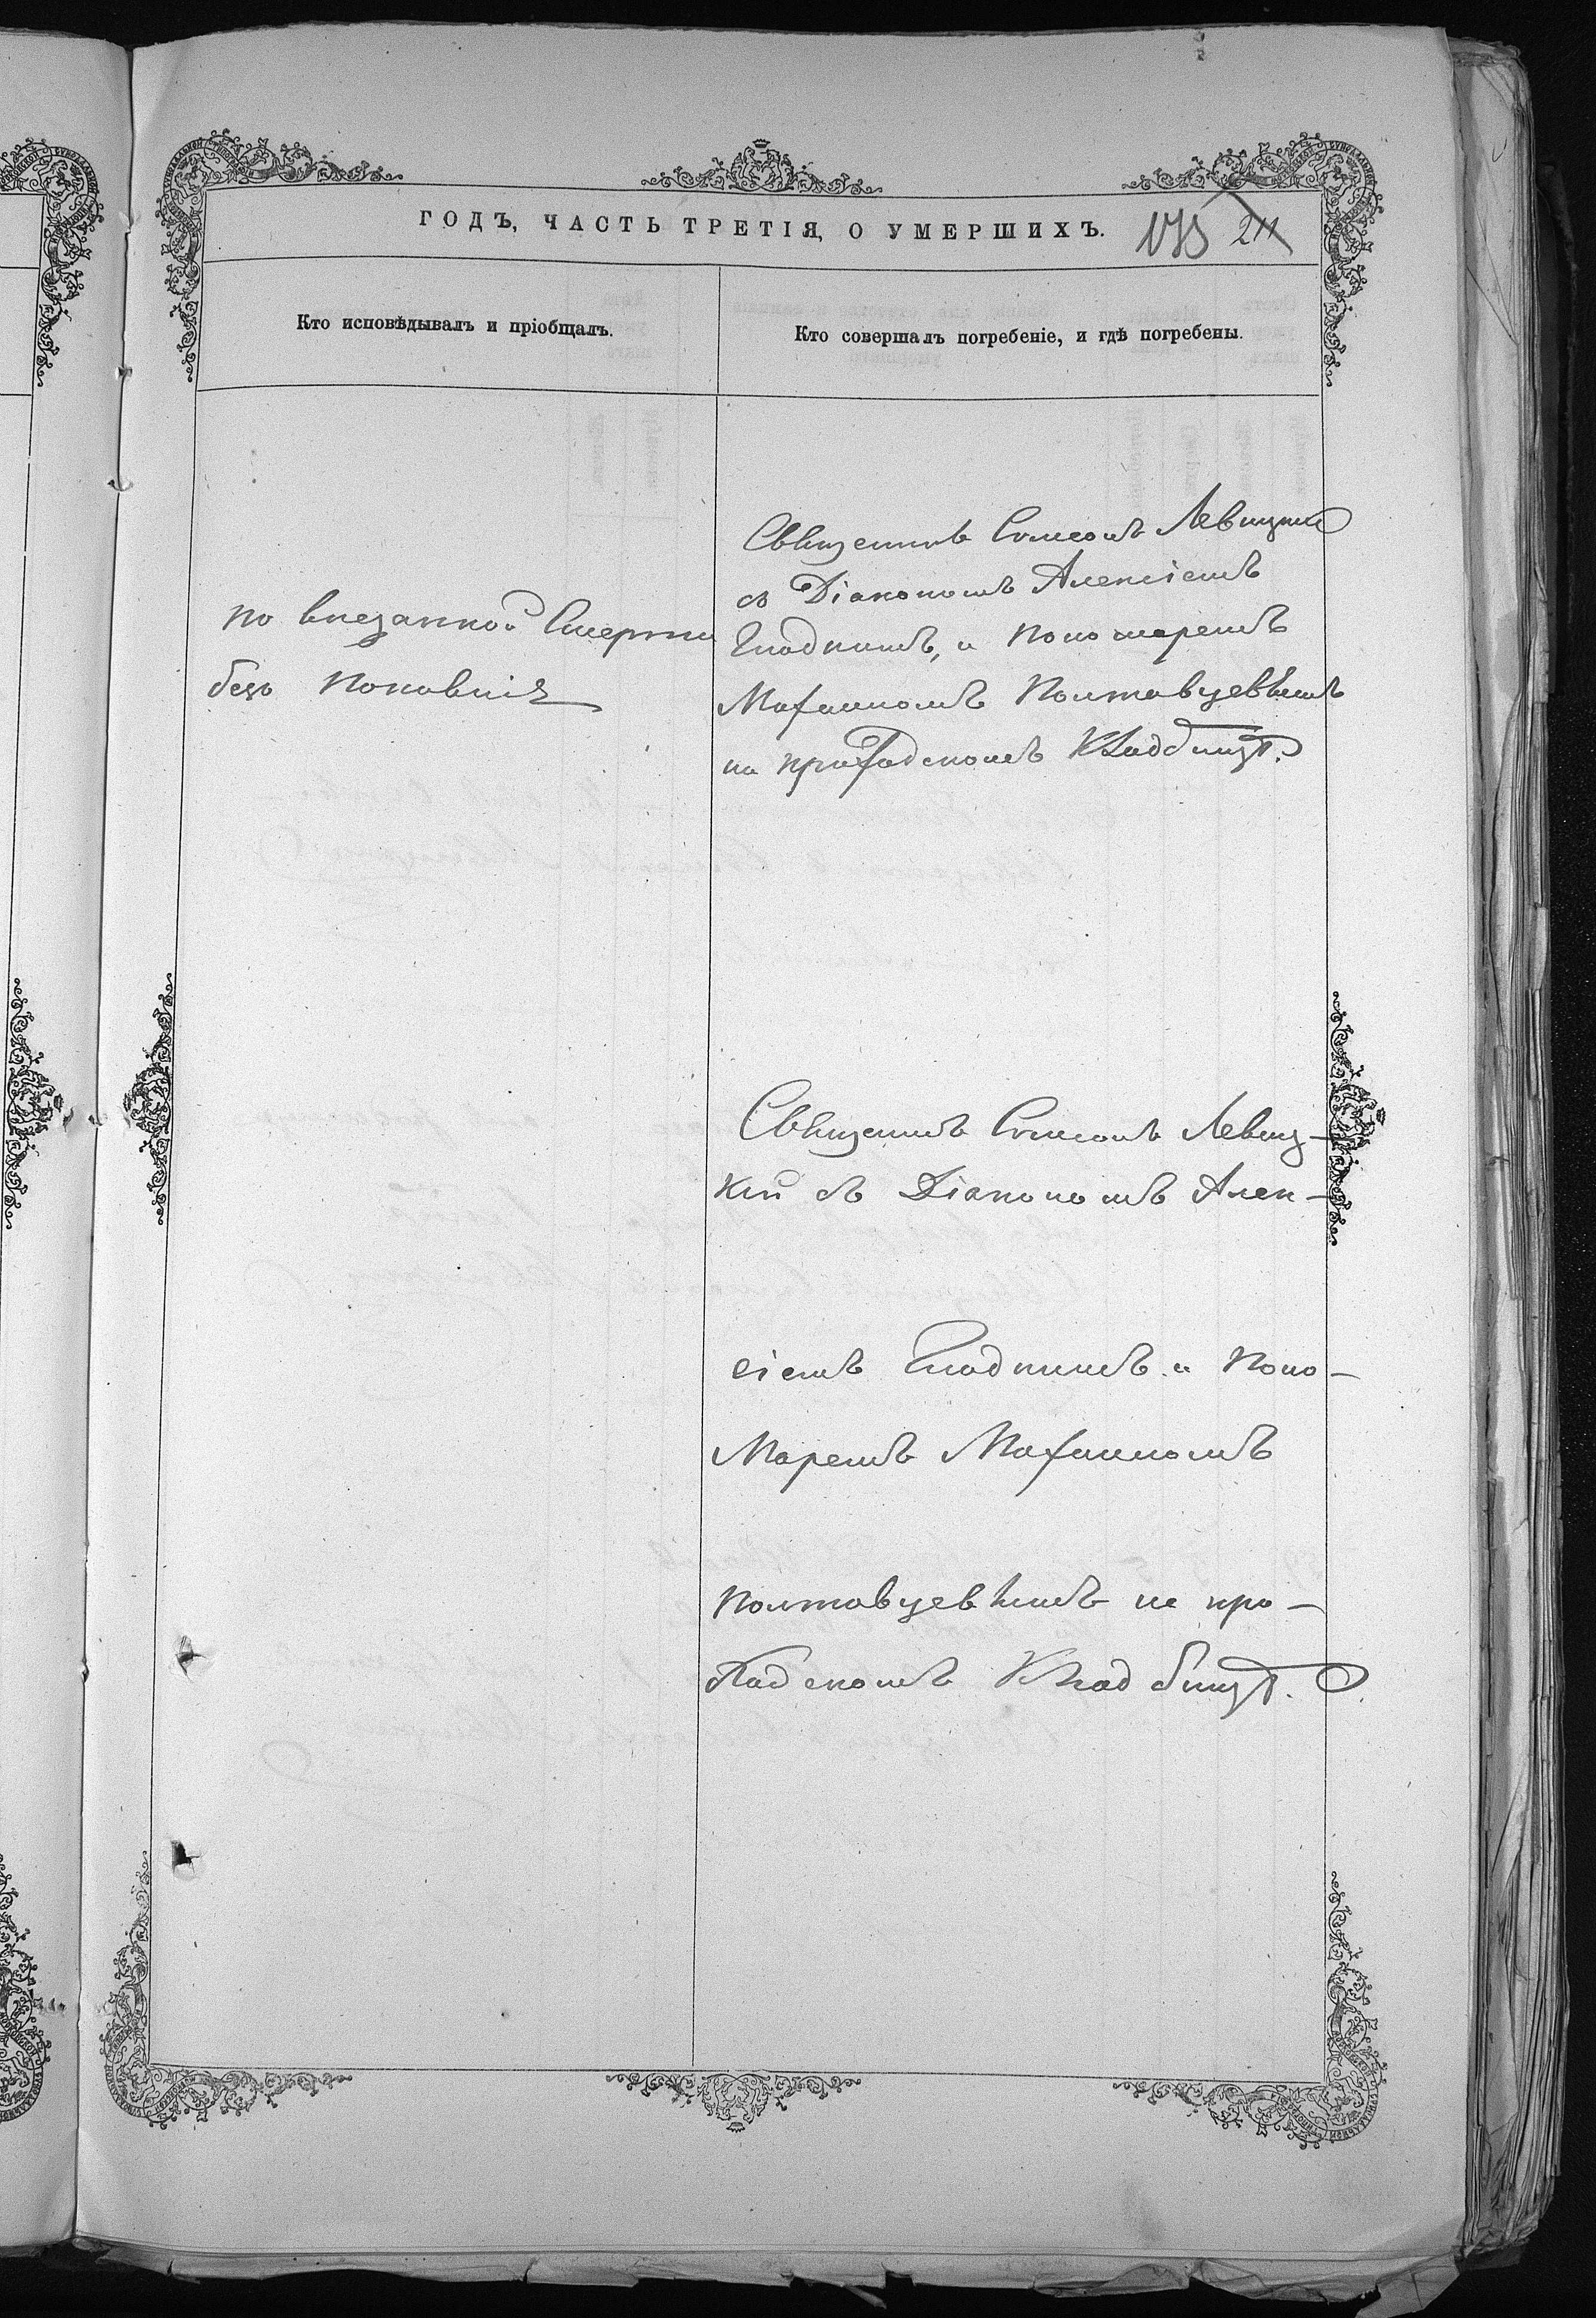 ГОДЪ, ЧАСТЬ ТРЕТІЯ, О УМЕРШИХЪ.
211
Кто исповѣдывалъ и пріобщалъ.
Кто совершалъ погребеніе, и гдѣ погребены.
по внезапной Смерти
безъ покаянія
Священникъ Симеонъ Левицкій
съ Діакономъ Алексіемъ
Гладкимъ, и Пономаремъ
Матѳіемъ Полтавцевымъ
на приходскомъ Кладбищѣ.
Священникъ Симеонъ Левиц-
кій съ Діакономъ Алек-
сіемъ Гладкимъ и Поно-
маремъ
Полтавцевымъ на при-
ходскомъ Кладбищѣ.